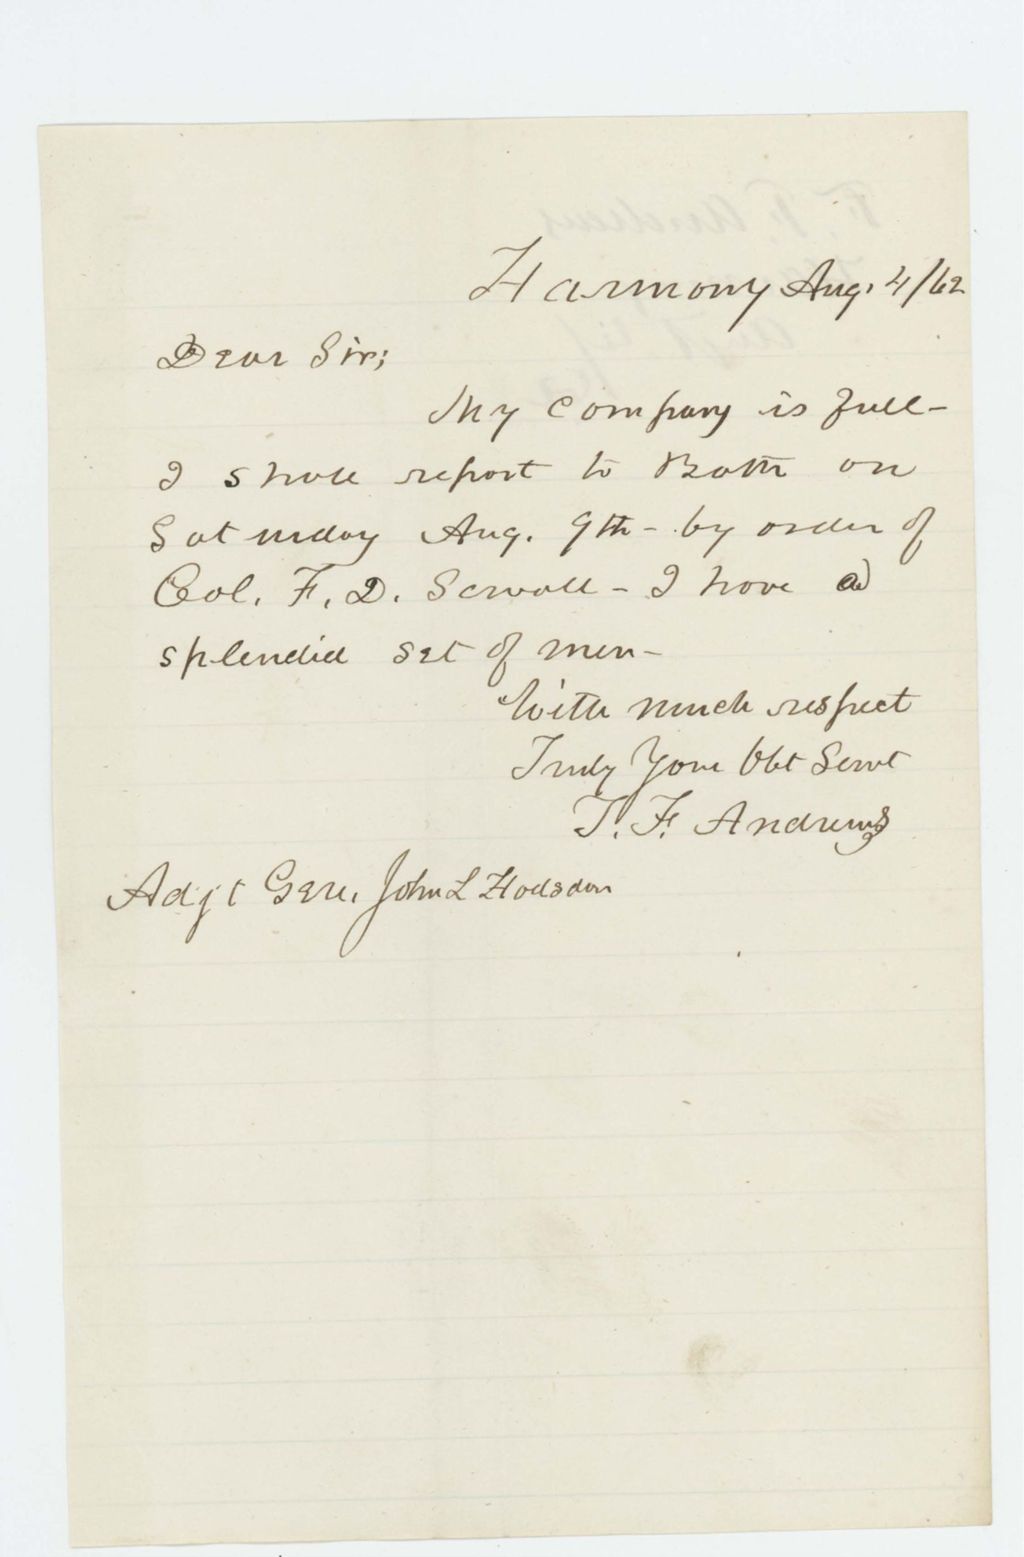 Harmony Aug. 4/62
Dear Sir;
My Company is full-
I shall report to Bath on
Saturday Aug. 9th - by order of
Col. F. D. Sewall - I have a
splendid set of men -
With much respect
Truly Your Obt Servt
T. F. Andrews
Adjt Gen. John L Hodsdon